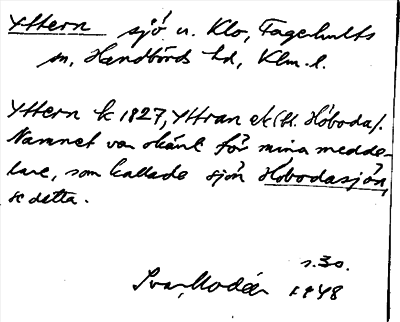 Yttern sjö u. Klo, Fagerhults
sn, Handbörds hd, Klm. l.
Yttern k 1827, Yttran ek (H. Höboda).
Namnet var okänt för mina medde-
lare, som kallade sjön Höbodasjön,
se detta.
s. 30.
Ivar Modéer 1948